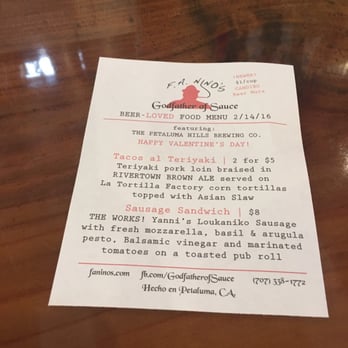 F.A. NINO'S
(BREWED)
$1/cup
CANDIED
Beer Nuts
Godfather of Sauce
BEER-LOVED FOOD MENU 2/14/16
featuring:
THE PETALUMA HILLS BREWING CO.
HAPPY VALENTINE'S DAY!
Tacos al Teriyaki | 2 for $5
Teriyaki pork loin braised in
RIVERTOWN BROWN ALE served on
La Tortilla Factory corn tortillas
topped with Asian Slaw
Sausage Sandwich | $8
THE WORKS! Yanni's Loukaniko Sausage
with fresh mozzarella, basil & arugula
pesto, Balsamic vinegar and marinated
tomatoes on a toasted pub roll
faninos.com fb.com/GodfatherofSauce (707) 338-1772
Hecho en Petaluma, CA.